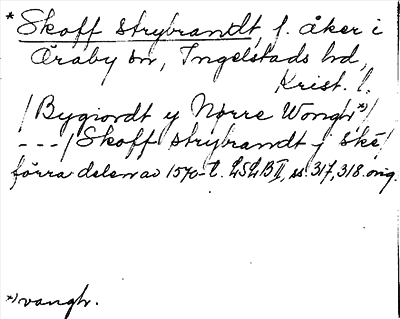 * Skoff strybrandt, f. åker i
Öraby sn, Ingelstads hd,
Krist. l.
/Bygiordt y Nørre Wongh*)/
---/Skoff strybrandt j ske/
förra delen av 1570-t. LSLB II, ss. 317, 318. orig.
*) vangh.